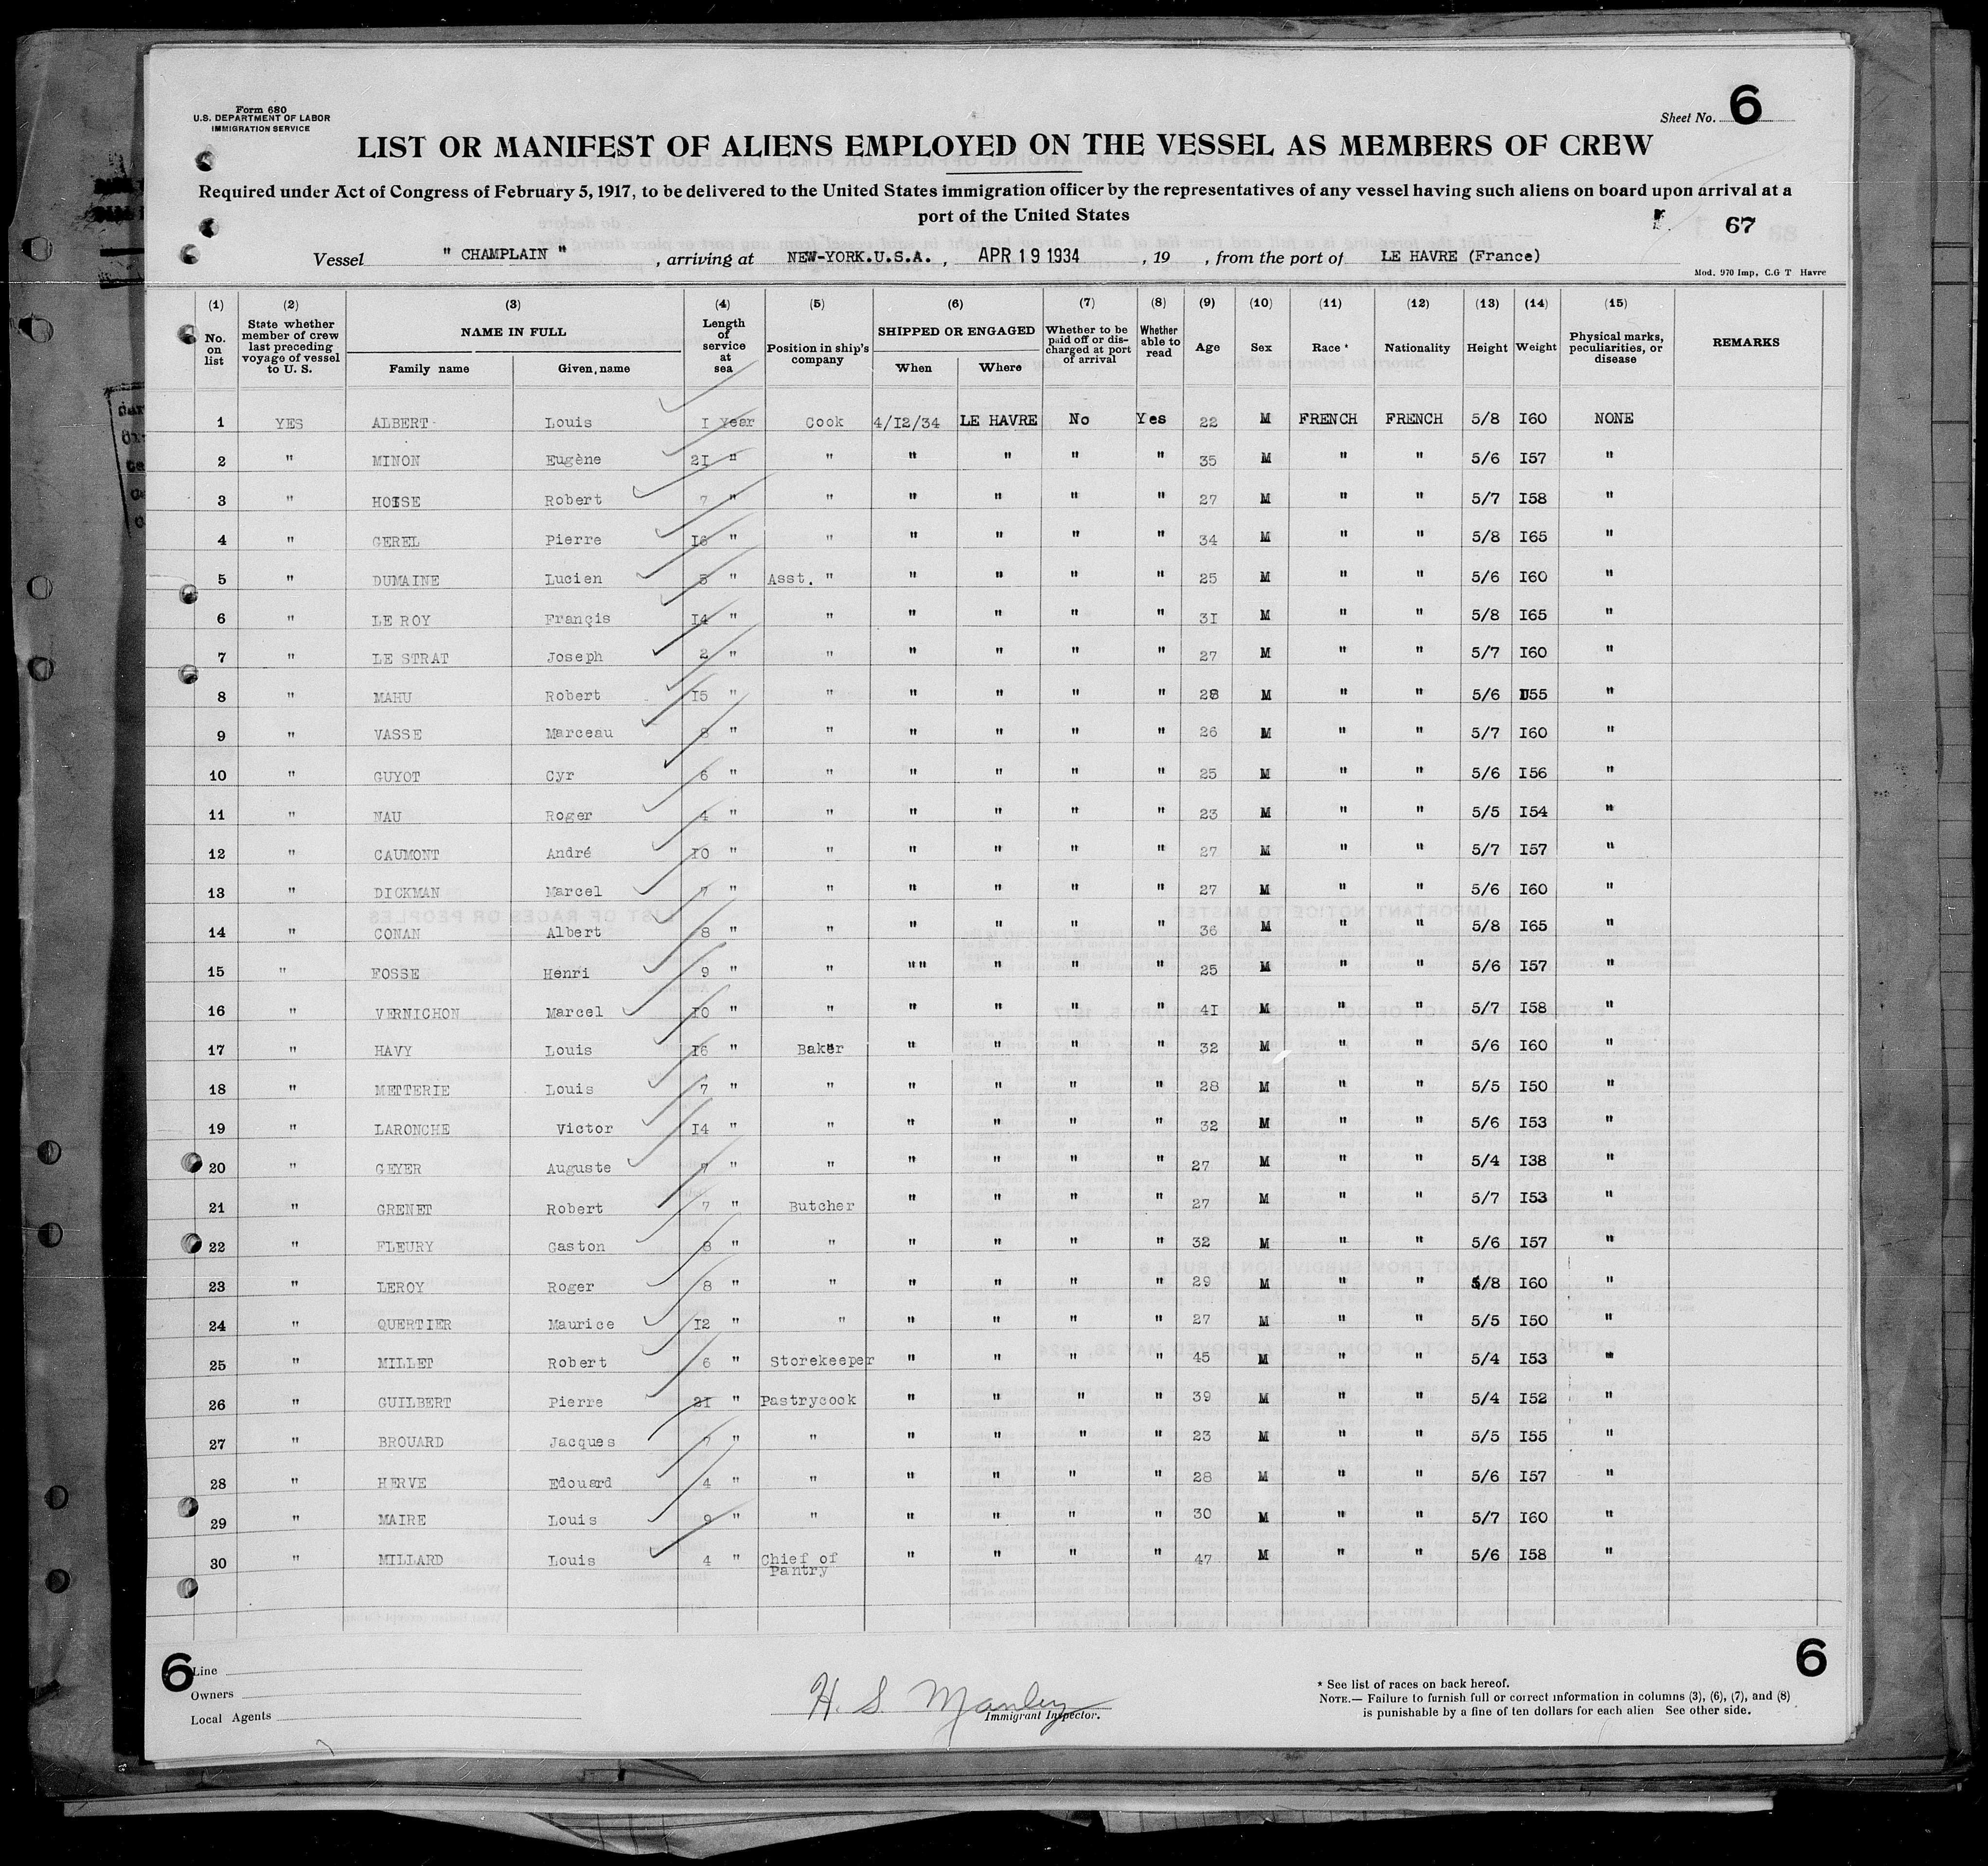 Form 680
U.S. DEPARTMENT OF LABOR
IMMIGRATION SERVICE
Sheet No. 6
LIST OR MANIFEST OF ALIENS EMPLOYED ON THE VESSEL AS MEMBERS OF CREW
Required under Act of Congress of February 5, 1917, to be delivered to the United States immigration officer by the representatives of any vessel having such aliens on board upon arrival at a
port of the United States
67
Vessel " CHAMPLAIN " , arriving at NEW-YORK.U.S.A. , APR 19 1934 , 19 , from the port of LE HAVRE (France)
Mod. 970 Imp. C.G T Havre
(1) (2) (3) (4) (5) (6) (7) (8) (9) (10) (11) (12) (13) (14) (15)
No. on list State whether member of crew last preceding voyage of vessel to U. S. NAME IN FULL Family name Given name Length of service at sea Position in ship's company SHIPPED OR ENGAGED When Where Whether to be paid off or discharged at port of arrival Whether able to read Age Sex Race * Nationality Height Weight Physical marks, peculiarities, or disease REMARKS
1 YES ALBERT Louis I Year Cook 4/I2/34 LE HAVRE No Yes 22 M FRENCH FRENCH 5/8 I60 NONE
2 " MINON Eugène 2I " " " " " " 35 M " " 5/6 I57 "
3 " HOISE Robert 7 " " " " " " 27 M " " 5/7 I58 "
4 " GEREL Pierre I6 " " " " " " 34 M " " 5/8 I65 "
5 " DUMAINE Lucien 5 " Asst. " " " " " 25 M " " 5/6 I60 "
6 " LE ROY Françis I4 " " " " " " 3I M " " 5/8 I65 "
7 " LE STRAT Joseph 2 " " " " " " 27 M " " 5/7 I60 "
8 " MAHU Robert I5 " " " " " " 28 M " " 5/6 I55 "
9 " VASSE Marceau 8 " " " " " " 26 M " " 5/7 I60 "
10 " GUYOT Cyr 6 " " " " " " 25 M " " 5/6 I56 "
11 " NAU Roger 4 " " " " " " 23 M " " 5/5 I54 "
12 " CAUMONT André I0 " " " " " " 27 M " " 5/7 I57 "
13 " DICKMAN Marcel 7 " " " " " " 27 M " " 5/6 I60 "
14 " CONAN Albert 8 " " " " " " 36 M " " 5/8 I65 "
15 " FOSSE Henri 9 " " "" " " " 25 M " " 5/6 I57 "
16 " VERNICHON Marcel I0 " " " " " " 4I M " " 5/7 I58 "
17 " HAVY Louis I6 " Baker " " " " 32 M " " 5/6 I60 "
18 " METTERIE Louis 7 " " " " " " 28 M " " 5/5 I50 "
19 " LARONCHE Victor I4 " " " " " " 32 M " " 5/6 I53 "
20 " GEYER Auguste 7 " " " " " " 27 M " " 5/4 I38 "
21 " GRENET Robert 7 " Butcher " " " " 27 M " " 5/7 I53 "
22 " FLEURY Gaston 8 " " " " " " 32 M " " 5/6 I57 "
23 " LEROY Roger 8 " " " " " " 29 M " " 5/8 I60 "
24 " QUERTIER Maurice I2 " " " " " " 27 M " " 5/5 I50 "
25 " MILLET Robert 6 " Storekeeper " " " " 45 M " " 5/4 I53 "
26 " GUILBERT Pierre 2I " Pastrycook " " " " 39 M " " 5/4 I52 "
27 " BROUARD Jacques 7 " " " " " " 23 M " " 5/5 I55 "
28 " HERVE Edouard 4 " " " " " " 28 M " " 5/6 I57 "
29 " MAIRE Louis 9 " " " " " " 30 M " " 5/7 I60 "
30 " MILLARD Louis 4 " Chief of Pantry " " " " 47 M " " 5/6 I58 "
6
6
Line
Owners
Local Agents
H. S. Manley
Immigrant Inspector.
* See list of races on back hereof.
NOTE.— Failure to furnish full or correct information in columns (3), (6), (7), and (8)
is punishable by a fine of ten dollars for each alien See other side.